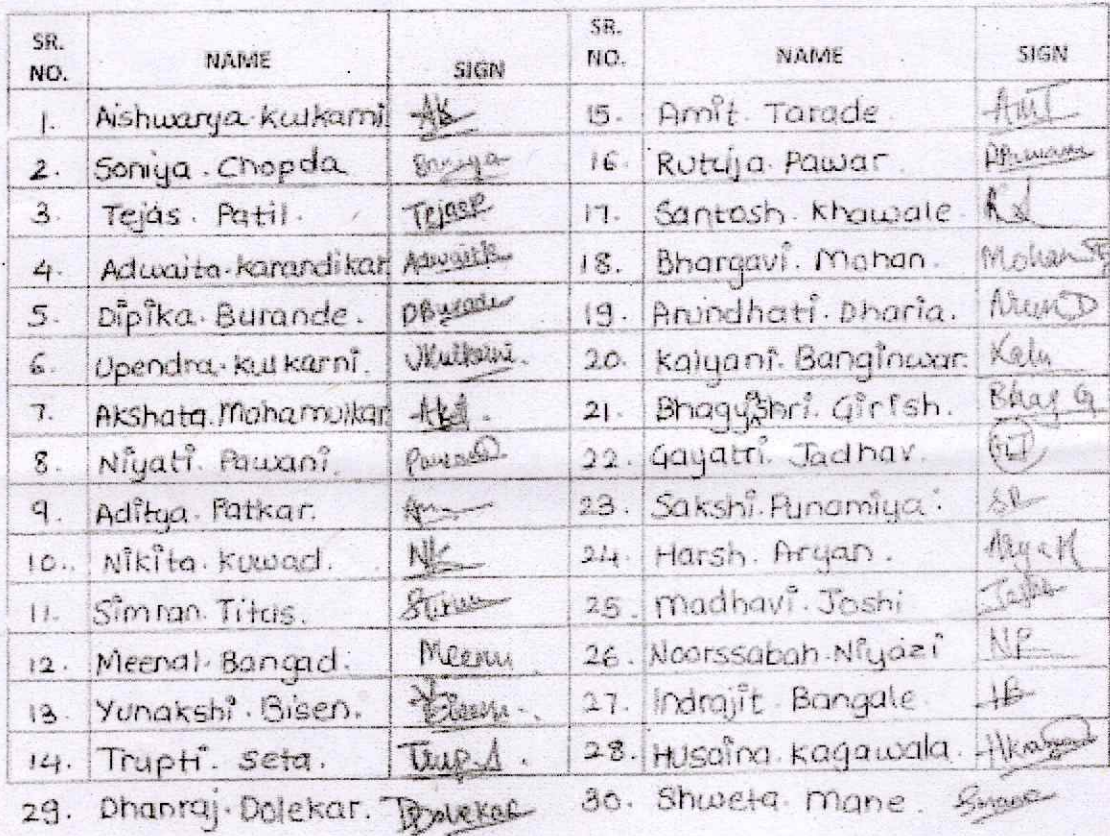 SR. NO. NAME SIGN SR. NO. NAME SIGN
1. Aishwarya Kulkarni AK 15. Amit Tarade AmT
2. Soniya Chopda Soniya 16. Rutuja Pawar
3. Tejas Patil TejasP 17. Santosh Khawale
4. Adwaita Karandikar 18. Bhargavi Mohan Mohan
5. Dipika Burande. DBurade 19. Arundhati Dharia.
6. Upendra Kulkarni. UKulkarni. 20. Kalyani Banginwar. Kalu
7. Akshata Mahamulkar 21. Bhagyashri Girish. Bhag G
8. Niyati Pawani. 22. Gayatri Jadhav.
9. Aditya Patkar. 23. Sakshi Punamiya. SP
10. Nikita Kuwad. NK 24. Harsh Aryan. AryaH
11. Simran Titus. 25. Madhavi Joshi Joshi
12. Meenal Bangad. Meenu 26. Noorssabah Niyazi
13. Yunakshi Bisen. 27. Indrajit Bangale IB
14. Trupti Seta. Trup.S. 28. Husaina Kagawala.
29. Dhanraj Dolekar. DDolekar 30. Shweta Mane. Smane